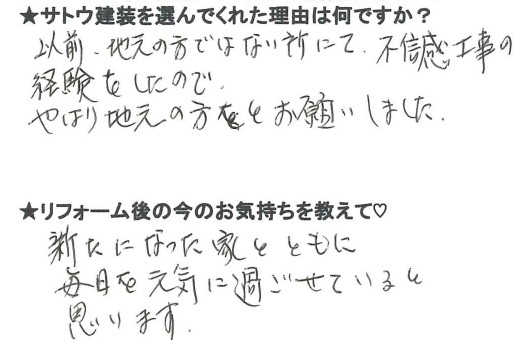 ★サトウ建装を選んでくれた理由は何ですか？
以前、地元の方ではない所にて、不信感工事の
経験をしたので、
やはり地元の方をとお願いしました．
★リフォーム後の今のお気持ちを教えて♡
新たになった家とともに
毎日を元気に過ごせていると
思います．